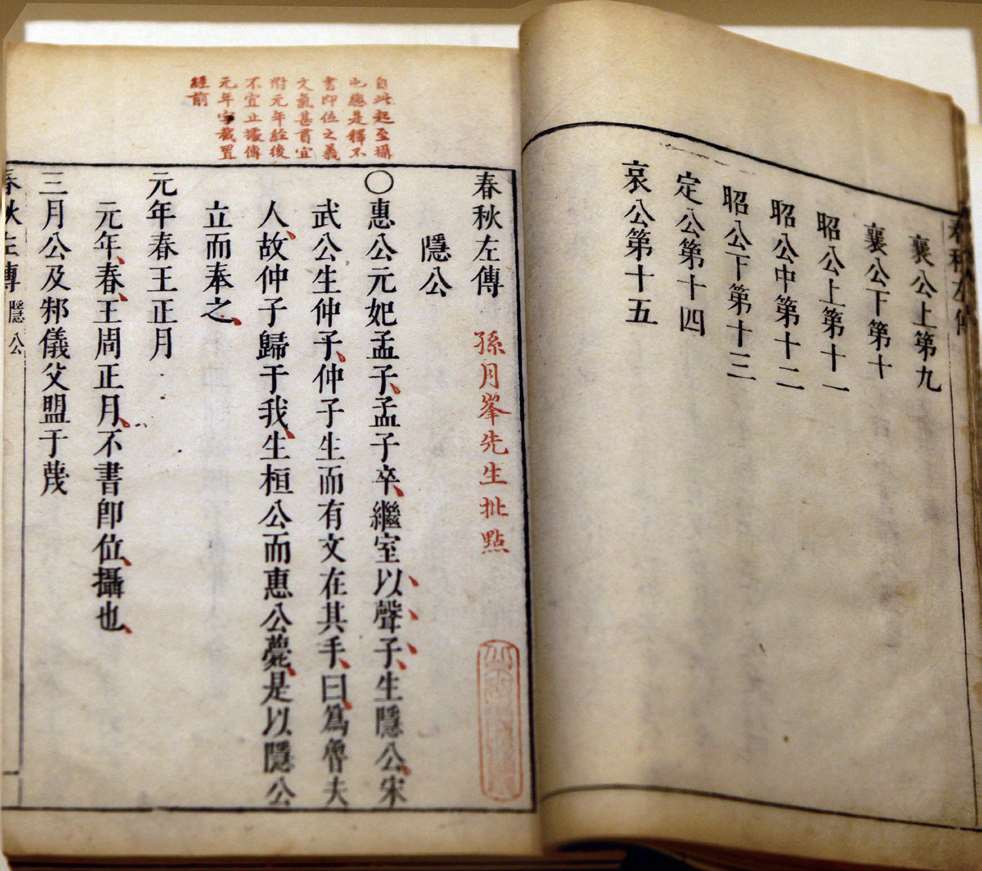 春秋左傳
襄公上第九
襄公下第十
昭公上第十一
昭公中第十二
昭公下第十三
定公第十四
哀公第十五
春秋左傳 孫月峯先生批點
隱公
自此起至攝
也總是釋不
書即位之義
文氣甚貫宜
附元年經後
不宜止據傳
元年字截置
經前
〇惠公元妃孟子、孟子卒、繼室以聲子、生隱公、宋
武公生仲子、仲子生而有文在其手、曰、爲魯夫
人、故仲子歸于我、生桓公而惠公薨、是以隱公
立而奉之、
元年春王正月
元年、春、王周正月、不書卽位、攝也、
三月公及邾儀父盟于蔑
春秋左傳 隱公 一